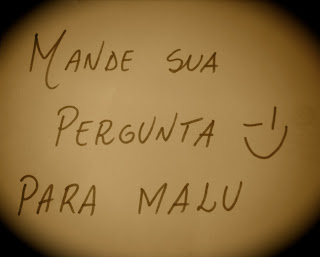 MANDE SUA
PERGUNTA
PARA MALU